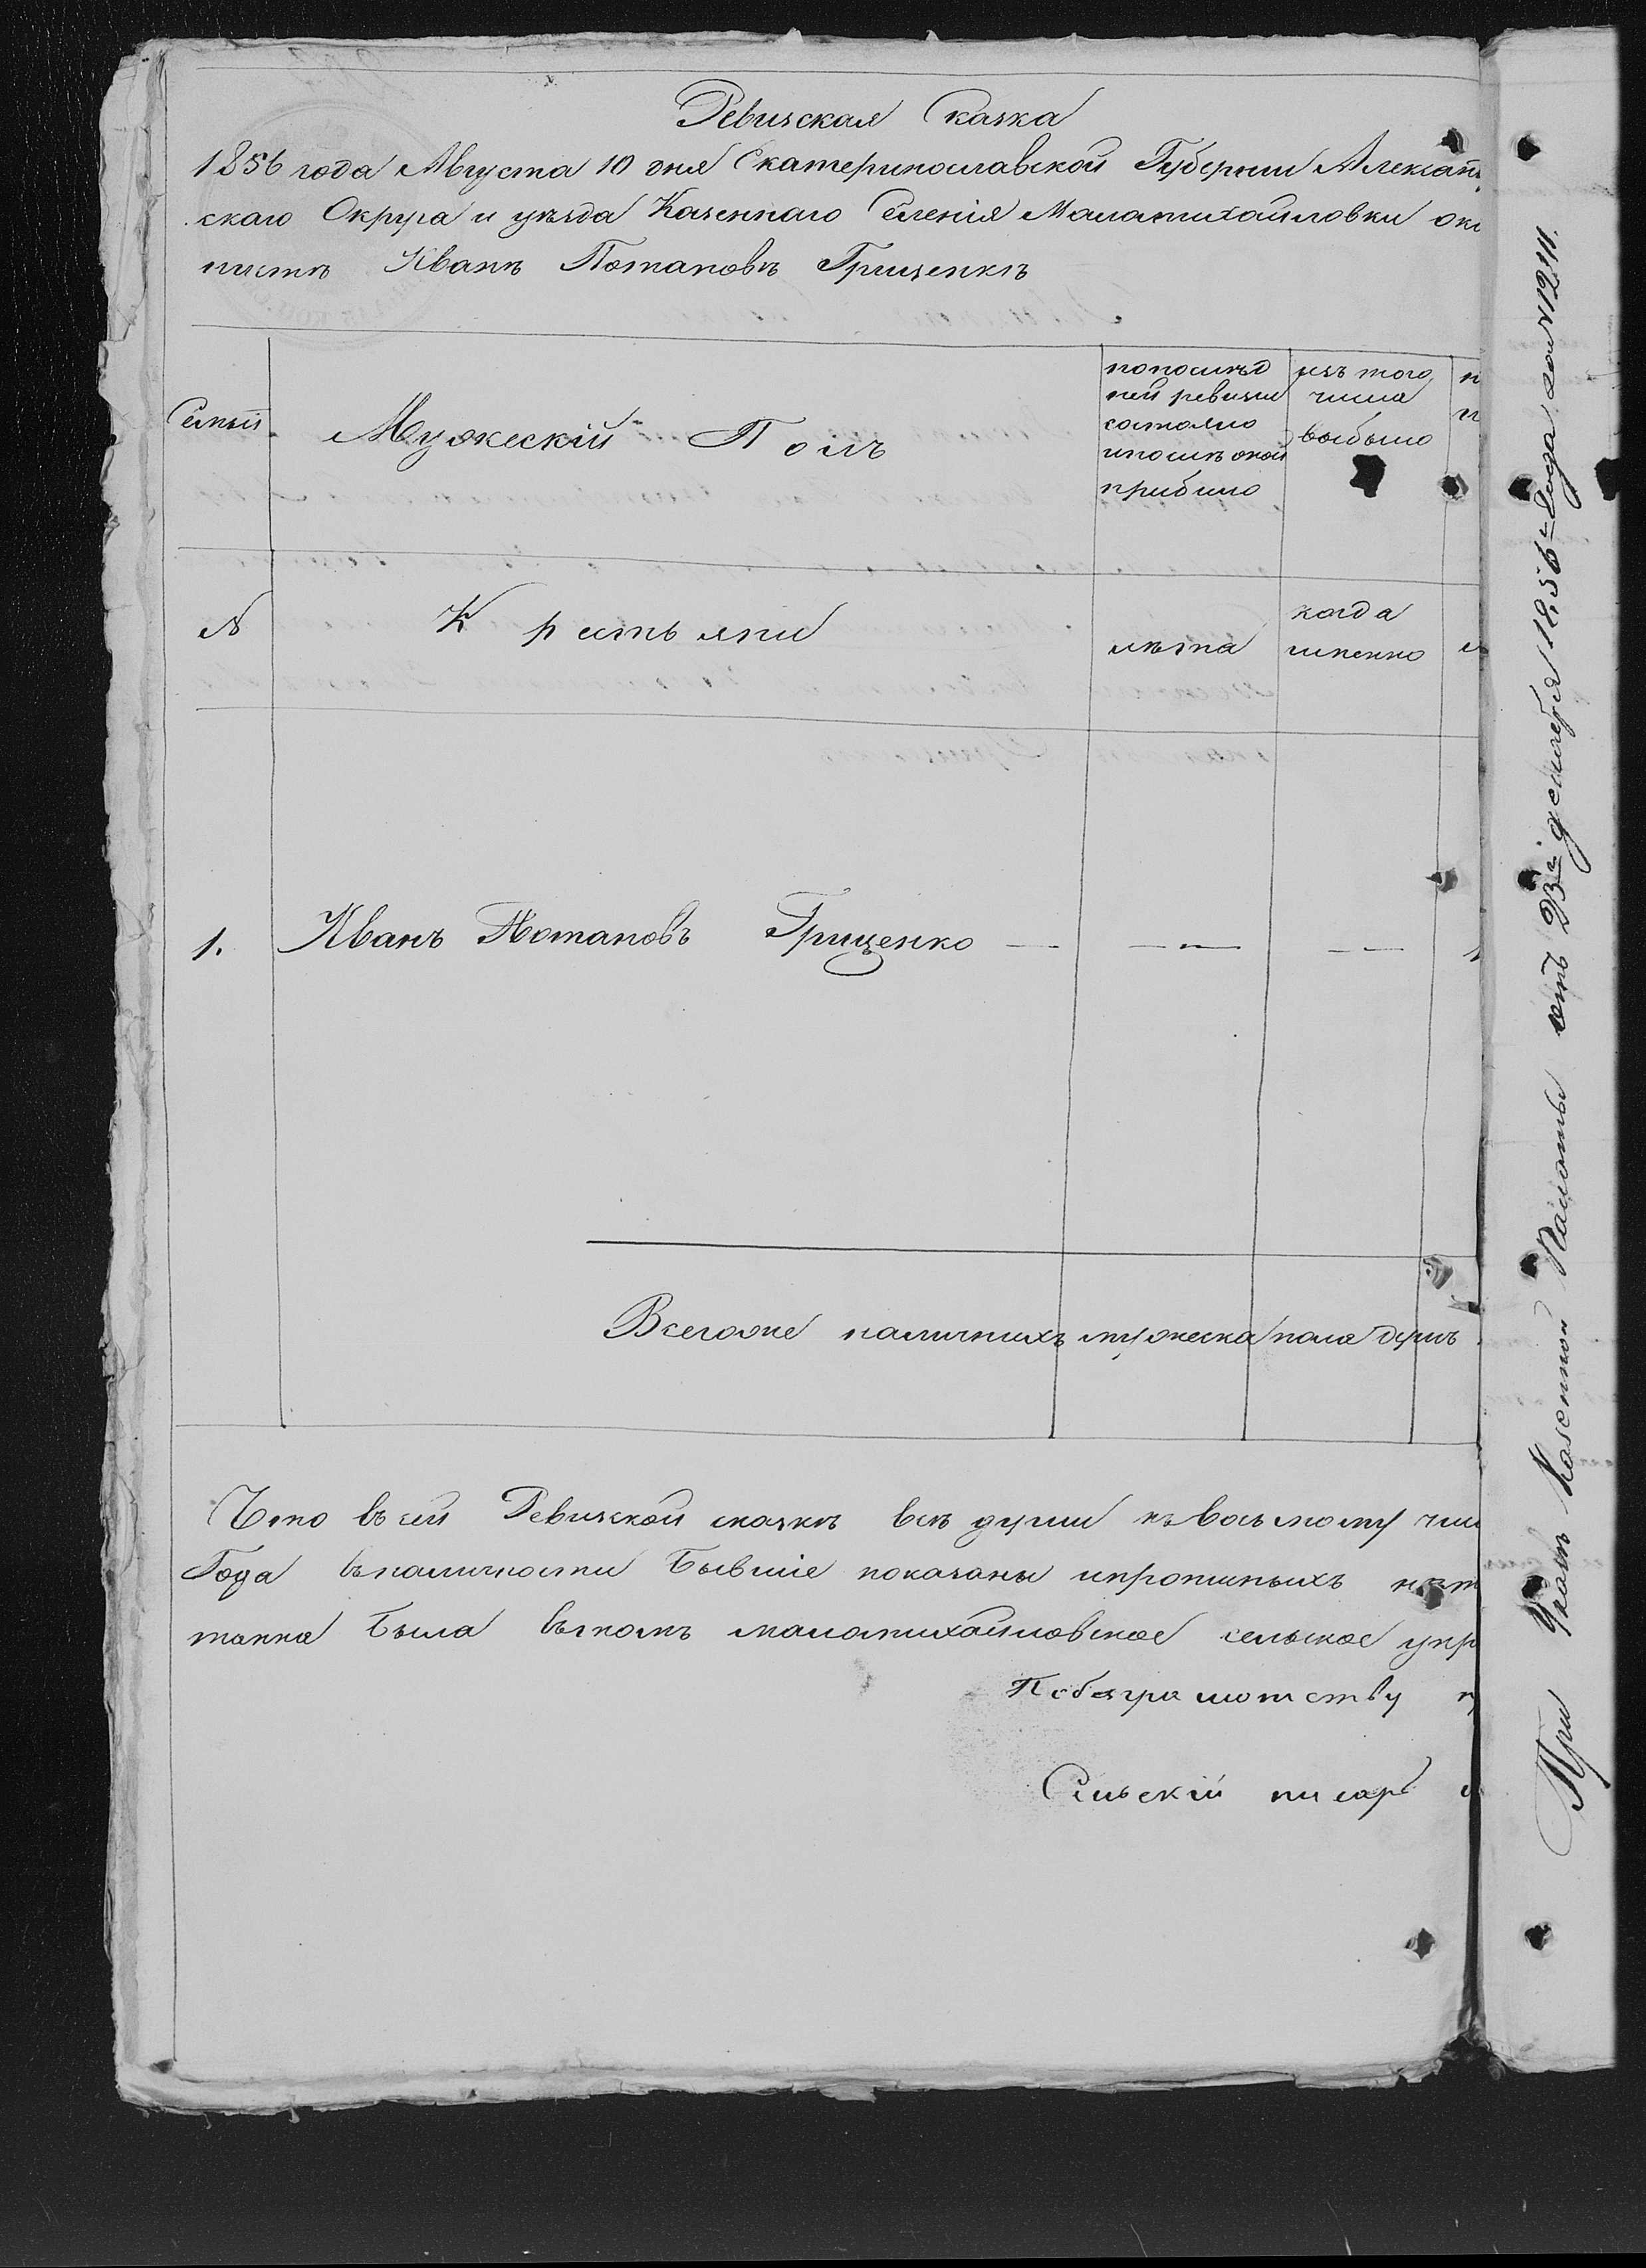 Ревизская Сказка
1856 года Августа 10 дня Екатеринославской Губернии Алексан
скаго Округа и уѣзда Казеннаго Селенія Маломихайловки око
пискѣ Иванѣ Потаповѣ Гриценкѣ
Семьи
Мужескій Полъ
попослѣд
ней ревизіи
состояло
ипослѣ оной
прибыло
изъ того
числа
выбыло
№
Крестьяни
лѣта
когда
именно
1. Иванъ Потаповъ Гриценко — — —
Всегоже наличныхъ мужеска пола душъ
Что въ сей Ревизской сказкѣ всѣ души къ восьмому чис
Года въналичности бывшіе показаны ипрописныхъ нѣт
маломихайловское сельское упр
По безграмотству
Сельскій писарь
При Указѣ Казенной Палаты отъ 23го декабря 1856го Года за № 12411.